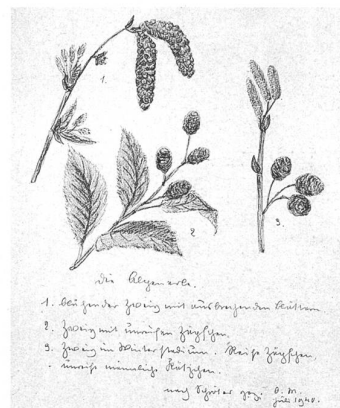 1.
2
3.
Die Alpenerle.
1. blühender Zweig mit ausbrechenden Blättern
2. Zweig mit unreifen Zäpfchen.
3. Zweig im Winterstadium. Reife Zäpfchen.
unreife männliche Kätzchen.
nach Schröter gez. O. M.
Juli 1940.